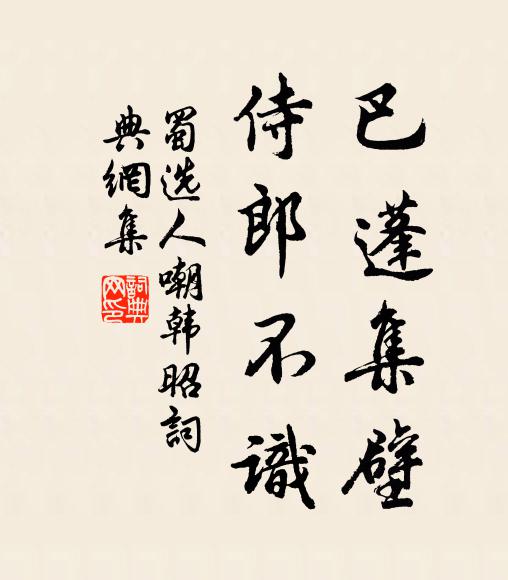 巴蓬集壁
侍郎不識
蜀选人嘲韩昭詞
典網集
詞典
网印